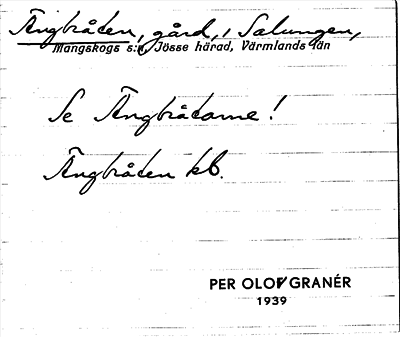 Ängbråten, gård, i Salungen,
Mangskogs s:n, Jösse härad, Värmlands län
Se Ängbråtarne!
Ängbråten kb.
PER OLOF GRANÉR
1939